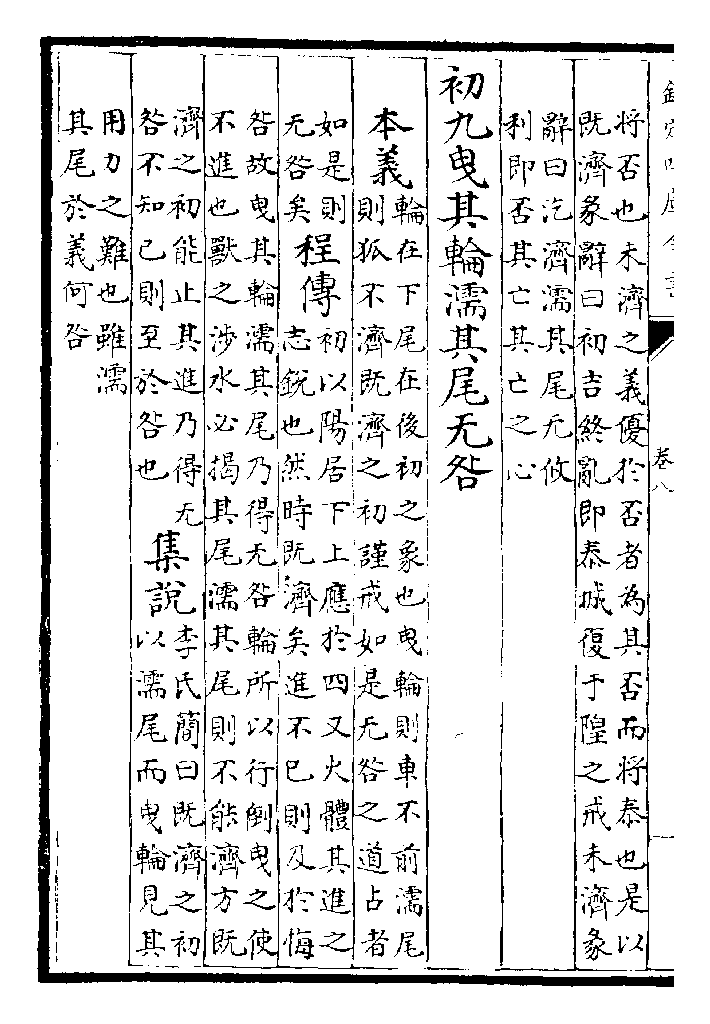 欽定四庫全書
卷八
將否也未濟之義優於否者為其否而將泰也是以
既濟彖辭曰初吉終亂即泰城復于隍之戒未濟彖
辭曰汔濟濡其尾无攸
利即否其亡其亡之心
初九曳其輪濡其尾无咎
本義
輪在下尾在後初之象也曳輪則車不前濡尾
則狐不濟既濟之初謹戒如是无咎之道占者
如是則
无咎矣
程傳
初以陽居下上應於四又火體其進之
志銳也然時既濟矣進不已則及於悔
咎故曳其輪濡其尾乃得无咎輪所以行倒曳之使
不進也獸之涉水必揭其尾濡其尾則不能濟方既
濟之初能止其進乃得无
咎不知已則至於咎也
集說
李氏簡曰既濟之初
以濡尾而曳輪見其
用力之難也雖濡
其尾於義何咎